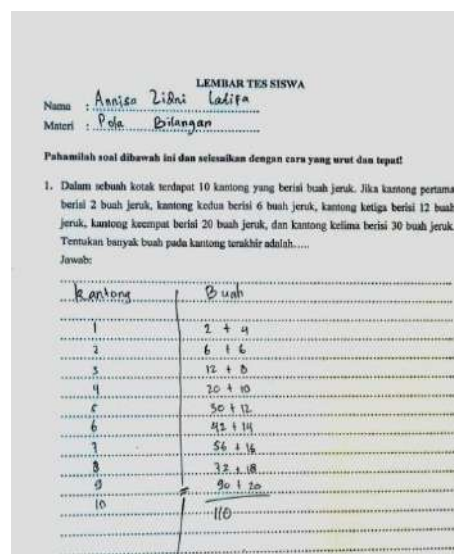 LEMBAR TES SISWA
Nama : Annisa Zidni Latifa
Materi : Pola Bilangan
Pahamilah soal dibawah ini dan selesaikan dengan cara yang urut dan tepat!
1. Dalam sebuah kotak terdapat 10 kantong yang berisi buah jeruk. Jika kantong pertama
berisi 2 buah jeruk, kantong kedua berisi 6 buah jeruk, kantong ketiga berisi 12 buah
jeruk, kantong keempat berisi 20 buah jeruk, dan kantong kelima berisi 30 buah jeruk.
Tentukan banyak buah pada kantong terakhir adalah.....
Jawab:
Kantong Buah
1 2 + 4
2 6 + 6
3 12 + 8
4 20 + 10
5 30 + 12
6 42 + 14
7 56 + 16
8 72 + 18
9 = 90 + 20
10 110